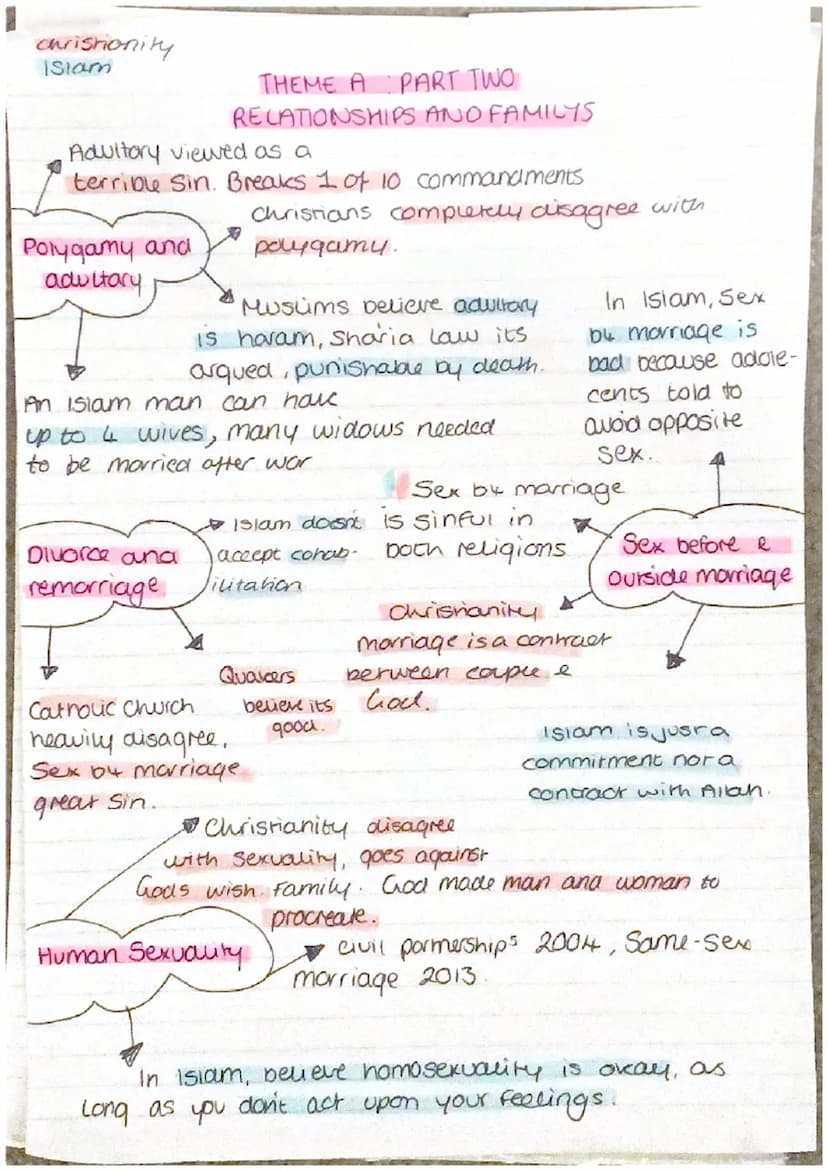 Christianity
Islam
THEME A : PART TWO
RELATIONSHIPS AND FAMILYS
Adultory viewed as a
terrible sin. Breaks 1 of 10 commandments
Christians completely disagree with
polygamy.
Polygamy and
adultary
Muslims believe adultary
is haram, Sharia law its
argued, punishable by death.
An Islam man can have
up to 4 wives, many widows needed
to be married after war
In Islam, Sex
b4 marriage is
bad because adole-
cents told to
avoid opposite
sex.
Sex b4 marriage
is sinful in
both religions
Sex before &
Outside marriage
Christianity
marriage is a contract
between couple &
God.
Islam is just a
commitment not a
contract with Allah.
Divorce and
remarriage
Islam doesnt
accept cohab-
ilitation
Quakers
believe its
good.
Catholic Church
heavily disagree,
Sex b4 marriage
great sin.
Christianity disagree
with sexuality, goes against
Gods wish. family. God made man and woman to
procreate.
Human Sexuality
civil partnerships 2004, Same-sex
marriage 2013.
In Islam, believe homosexuality is okay, as
long as you don't act upon your feelings.